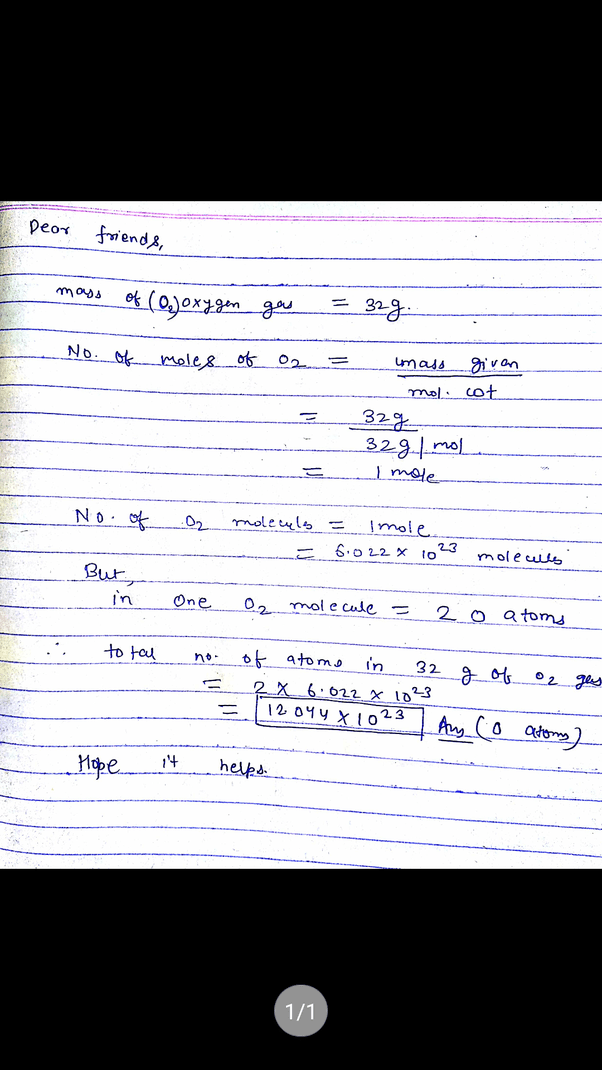 Dear friends,
mass of (O2) oxygen gas = 32g.
No. of moles of O2 = mass given
mol. wt
= 32g
32g/mol
= 1 mole
No. of O2 moleculs = 1mole
= 6.022 × 10^23 moleculs
But,
in one O2 molecule = 2 O atoms
∴ total no. of atoms in 32 g of O2 gas
= 2 × 6.022 × 10^23
= 12.044 × 10^23 Ans (O atoms)
Hope it helps.
1/1